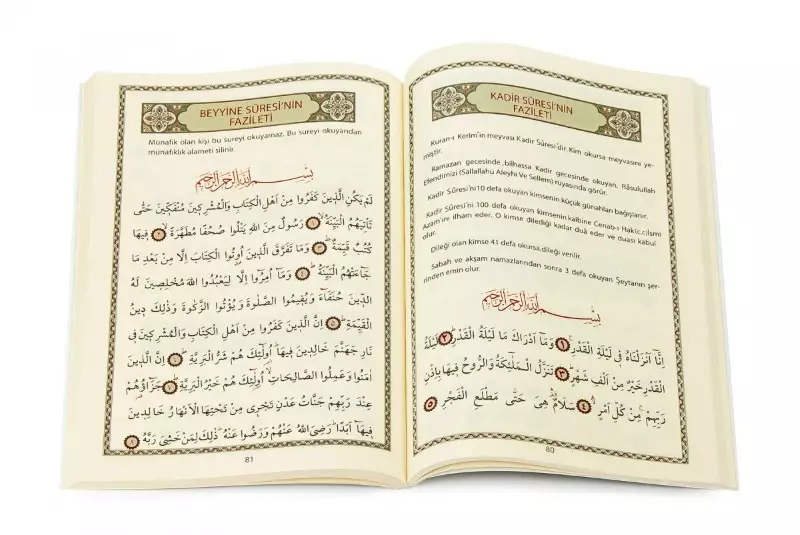 KADİR SÛRESİ'NİN
FAZİLETİ
Kuran-ı Kerim'in meyvası Kadir Sûresi'dir. Kim okursa meyvasını ye-
miştir.
Ramazan gecesinde, bilhassa Kadir gecesinde okuyan, Râsulullah
Efendimizi (Sallallahu Aleyhi Ve Sellem) rüyasında görür.
Kadir Sûresi'ni 10 defa okuyan kimsenin küçük günahları bağışlanır.
Kadir Sûresi'ni 100 defa okuyan kimsenin kalbine Cenab-ı Hak(c.c) İsmi
Azam'ını ilham eder. O kimse dilediği kadar duâ eder ve duası kabul
olur.
Dileği olan kimse 41 defa okursa, dileği verilir.
Sabah ve akşam namazlarından sonra 3 defa okuyan Şeytanın şer-
rinden emin olur.
بِسْمِ اللهِ الرَّحْمٰنِ الرَّحِيمِ
اِنَّٓا اَنْزَلْنَاهُ فِي لَيْلَةِ الْقَدْرِ ﴿١﴾ وَمَٓا اَدْرٰيكَ مَا لَيْلَةُ الْقَدْرِ ﴿٢﴾ لَيْلَةُ
الْقَدْرِ خَيْرٌ مِنْ اَلْفِ شَهْرٍ ﴿٣﴾ تَنَزَّلُ الْمَلٰٓئِكَةُ وَالرُّوحُ فِيهَا بِاِذْنِ
رَبِّهِمْ مِنْ كُلِّ اَمْرٍ ﴿٤﴾ سَلَامٌ هِيَ حَتّٰى مَطْلَعِ الْفَجْرِ ﴿٥﴾
80
BEYYİNE SÛRESİ'NİN
FAZİLETİ
Münafık olan kişi bu sureyi okuyamaz. Bu sureyi okuyandan
münafıklık alameti silinir.
بِسْمِ اللهِ الرَّحْمٰنِ الرَّحِيمِ
لَمْ يَكُنِ الَّذِينَ كَفَرُوا مِنْ اَهْلِ الْكِتَابِ وَالْمُشْرِكِينَ مُنْفَكِّينَ حَتّٰى
تَأْتِيَهُمُ الْبَيِّنَةُ ﴿١﴾ رَسُولٌ مِنَ اللهِ يَتْلُوا صُحُفًا مُطَهَّرَةً ﴿٢﴾ فِيهَا
كُتُبٌ قَيِّمَةٌ ﴿٣﴾ وَمَا تَفَرَّقَ الَّذِينَ اُوتُوا الْكِتَابَ اِلَّا مِنْ بَعْدِ مَا
جَٓاءَتْهُمُ الْبَيِّنَةُ ﴿٤﴾ وَمَٓا اُمِرُٓوا اِلَّا لِيَعْبُدُوا اللهَ مُخْلِصِينَ لَهُ
الدِّينَ حُنَفَٓاءَ وَيُقِيمُوا الصَّلٰوةَ وَيُؤْتُوا الزَّكٰوةَ وَذٰلِكَ دِينُ
الْقَيِّمَةِ ﴿٥﴾ اِنَّ الَّذِينَ كَفَرُوا مِنْ اَهْلِ الْكِتَابِ وَالْمُشْرِكِينَ فِي
نَارِ جَهَنَّمَ خَالِدِينَ فِيهَا اُولٰٓئِكَ هُمْ شَرُّ الْبَرِيَّةِ ﴿٦﴾ اِنَّ الَّذِينَ
اٰمَنُوا وَعَمِلُوا الصَّالِحَاتِ اُولٰٓئِكَ هُمْ خَيْرُ الْبَرِيَّةِ ﴿٧﴾ جَزَٓاؤُهُمْ
عِنْدَ رَبِّهِمْ جَنَّاتُ عَدْنٍ تَجْرِي مِنْ تَحْتِهَا الْاَنْهَارُ خَالِدِينَ
فِيهَٓا اَبَدًا رَضِيَ اللهُ عَنْهُمْ وَرَضُوا عَنْهُ ذٰلِكَ لِمَنْ خَشِيَ رَبَّهُ ﴿٨﴾
81